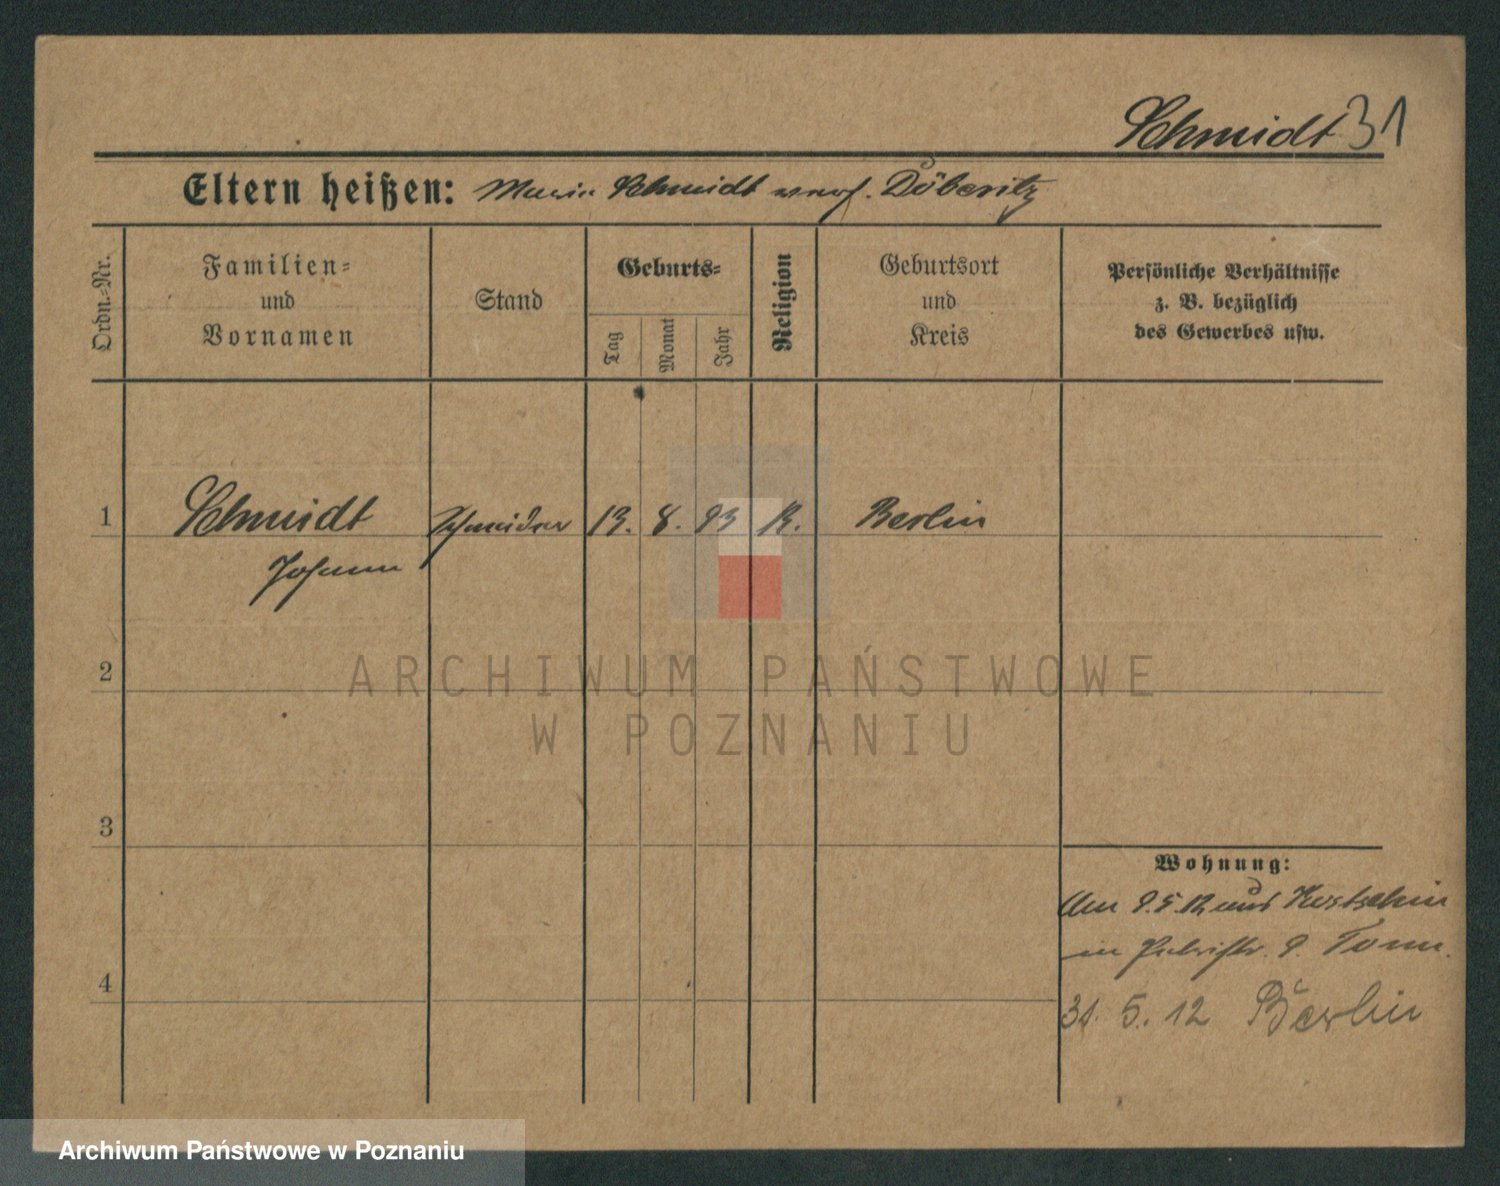 Schmidt 31
Eltern heißen: Maria Schmidt verh. Döberitz
Ordn.-Nr.
Familien-
und
Vornamen
Stand
Geburts-
Tag
Monat
Jahr
Religion
Geburtsort
und
Kreis
Persönliche Verhältnisse
z. B. bezüglich
des Gewerbes usw.
1 Schmidt Schneider 13. 8. 93 K. Berlin
Johann
2
3
4
ARCHIWUM PAŃSTWOWE
W POZNANIU
Wohnung:
Am 9.5.12 aus Kostschin
in 9.
31. 5. 12 Berlin
Archiwum Państwowe w Poznaniu